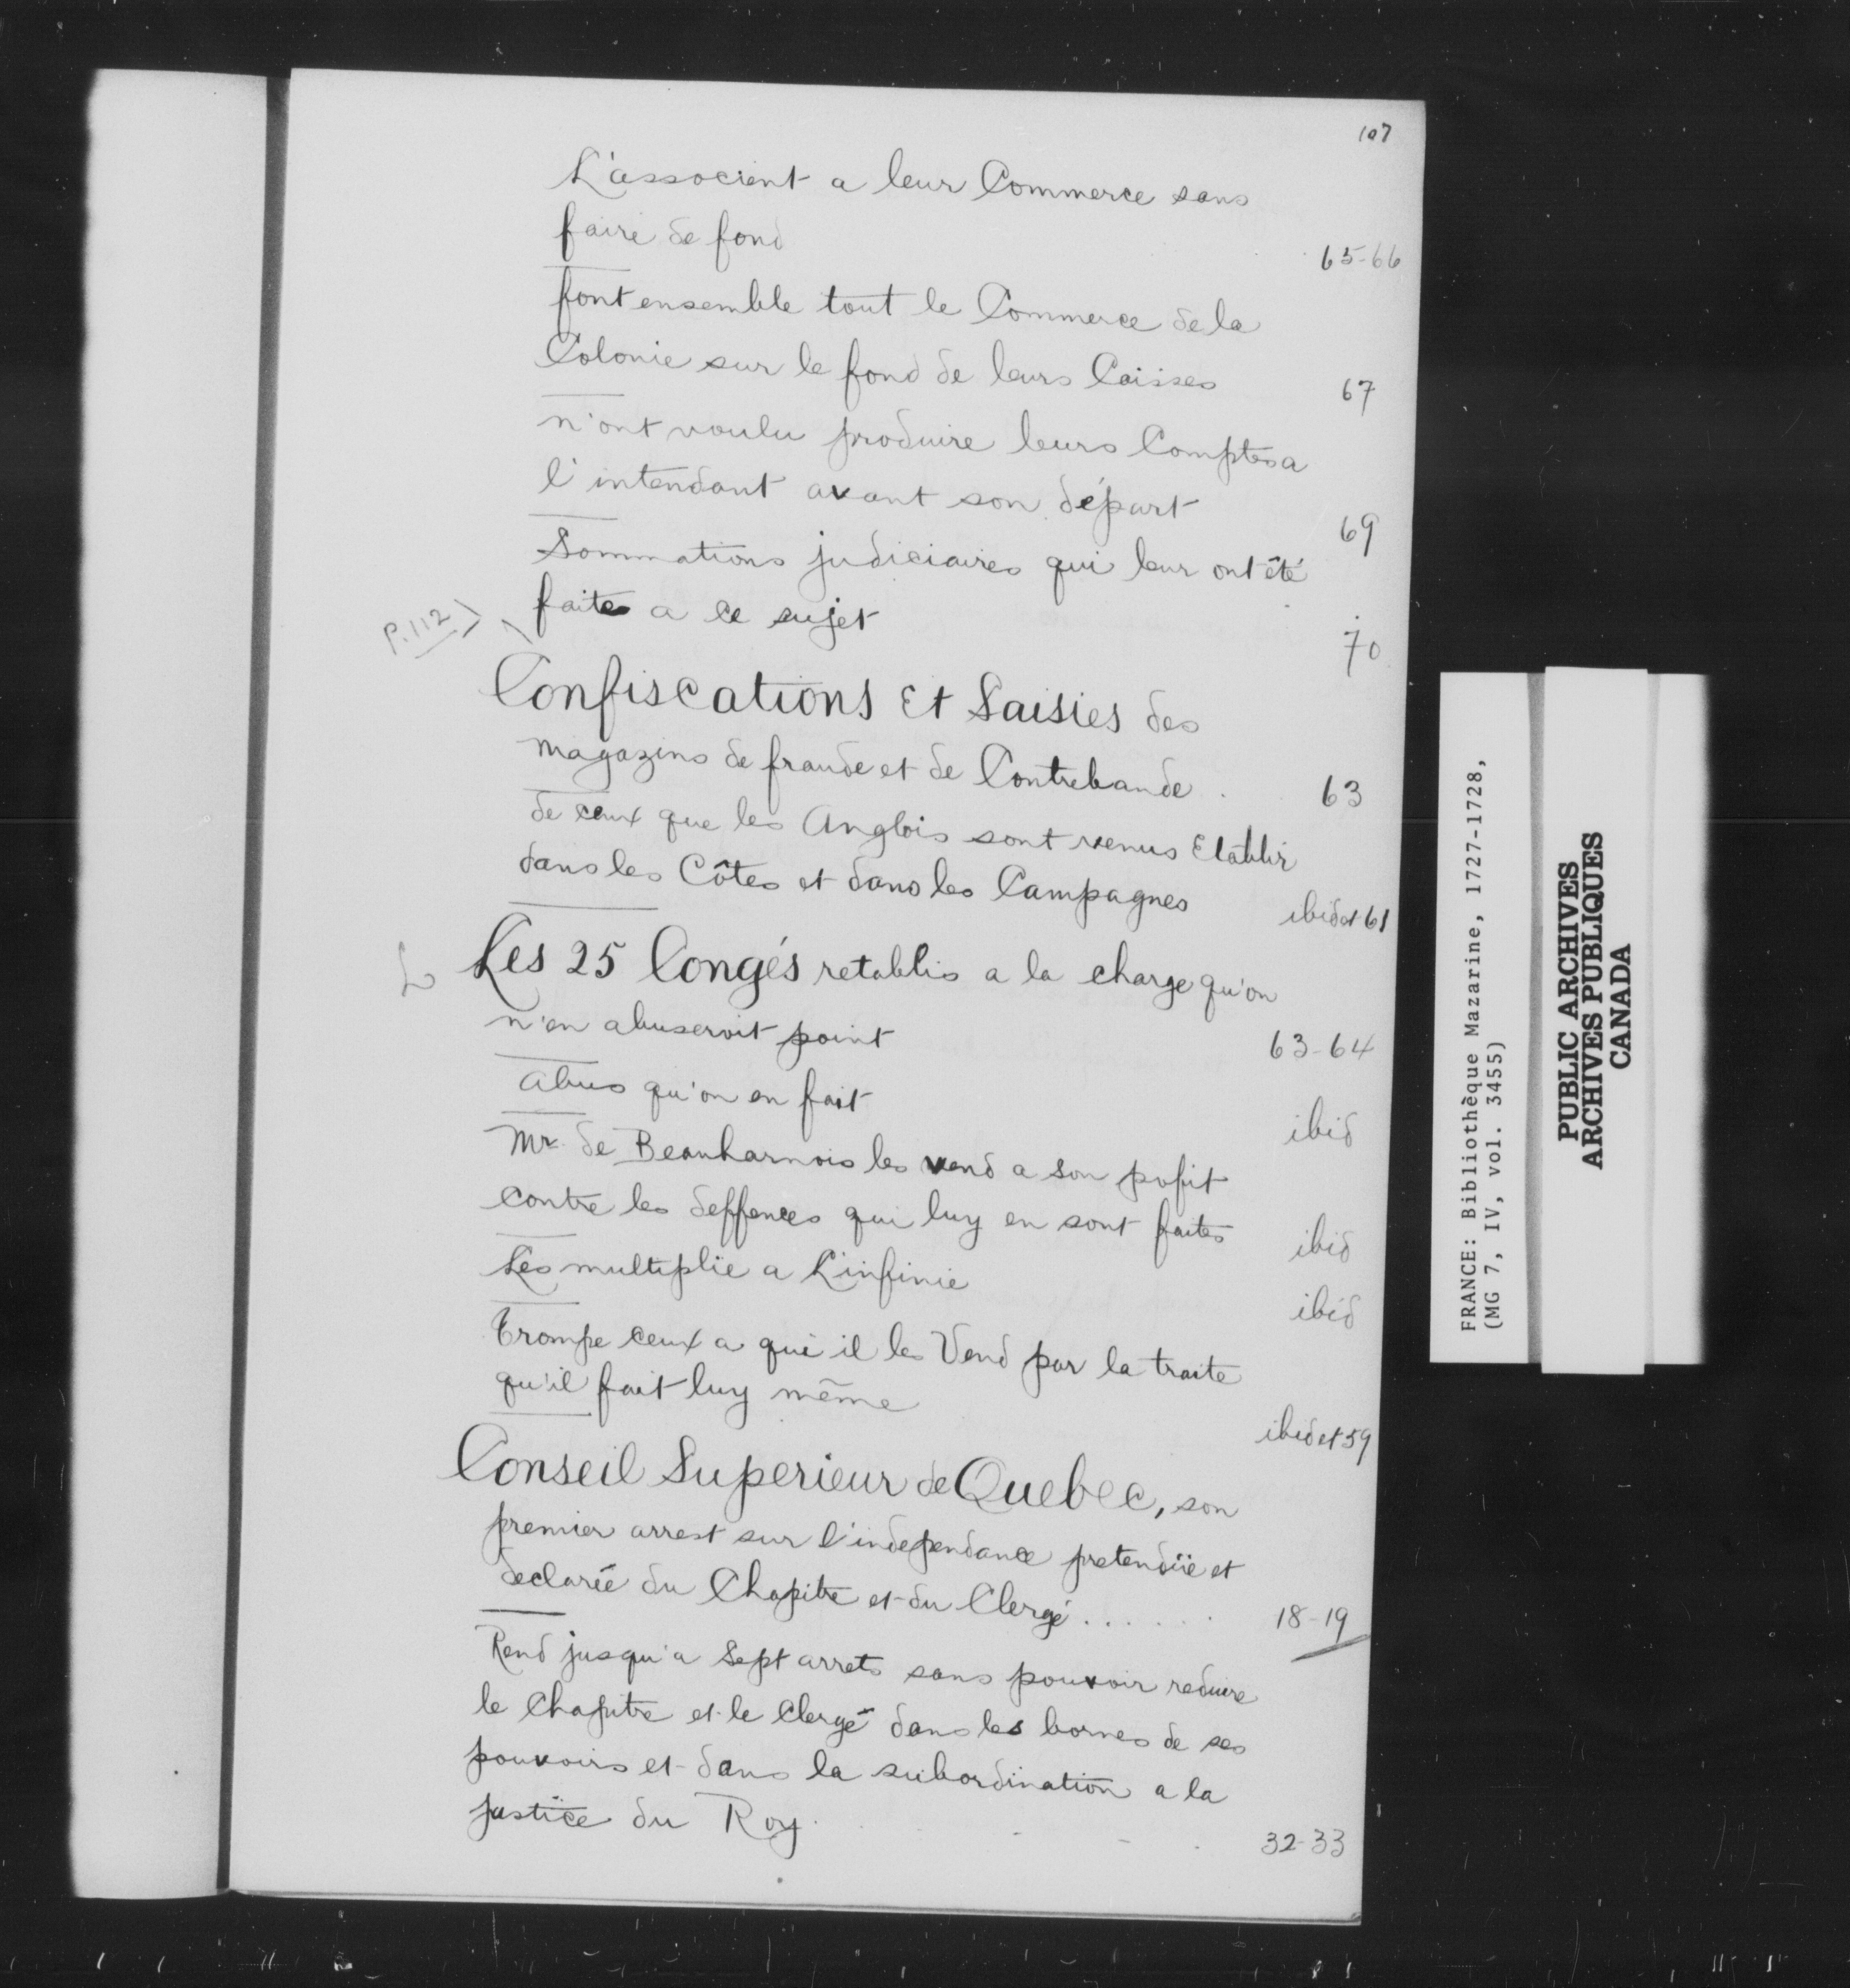 107
L'associent a leur Commerce sans
faire de fond 65-66
font ensemble tout le Commerce de la
Colonie sur le fond de leurs Caisses 67
n'ont voulu produire leurs Comptes a
l'intendant avant son départ 69
Sommations judiciaires qui leur ont êté
faites a ce sujet 70
P.112
Confiscations Et Saisies des
magazins de fraude et de Contrebande. 63
de ceux que les Anglois sont venus Etablir
dans les Côtes et dans les Campagnes ibid et 61
L Les 25 Congés retablis a la charge qu'on
n'en abuseroit point 63-64
abus qu'on en fait ibid
Mr de Beauharnois les vend a son profit
contre les deffences qui luy en sont faites ibid
Les multiplie a L'infinie ibid
Trompe ceux a qui il les Vend par la traite
qu'il fait luy même ibid et 59
Conseil Superieur de Quebec, son
premier arrest sur l'independance pretendüe et
declarée du Chapitre et du Clergé...... 18-19
Rend jusqu'a Sept arrets sans pouvoir reduire
le Chapitre et le Clergé dans les bornes de ses
pouvoirs et dans la subordination a la
justice du Roy. 32-33
FRANCE: Bibliothèque Mazarine, 1727-1728,
(MG 7, IV, vol. 3455)
PUBLIC ARCHIVES
ARCHIVES PUBLIQUES
CANADA